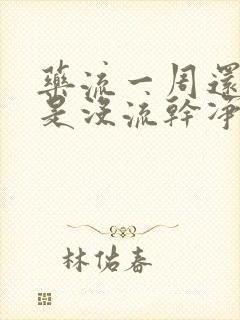 藥流一周還
是沒流幹淨
林佑春